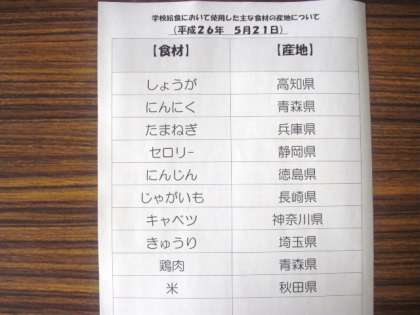 学校給食において使用した主な食材の産地について
(平成26年 5月21日)
【食材】 【産地】
しょうが 高知県
にんにく 青森県
たまねぎ 兵庫県
セロリー 静岡県
にんじん 徳島県
じゃがいも 長崎県
キャベツ 神奈川県
きゅうり 埼玉県
鶏肉 青森県
米 秋田県